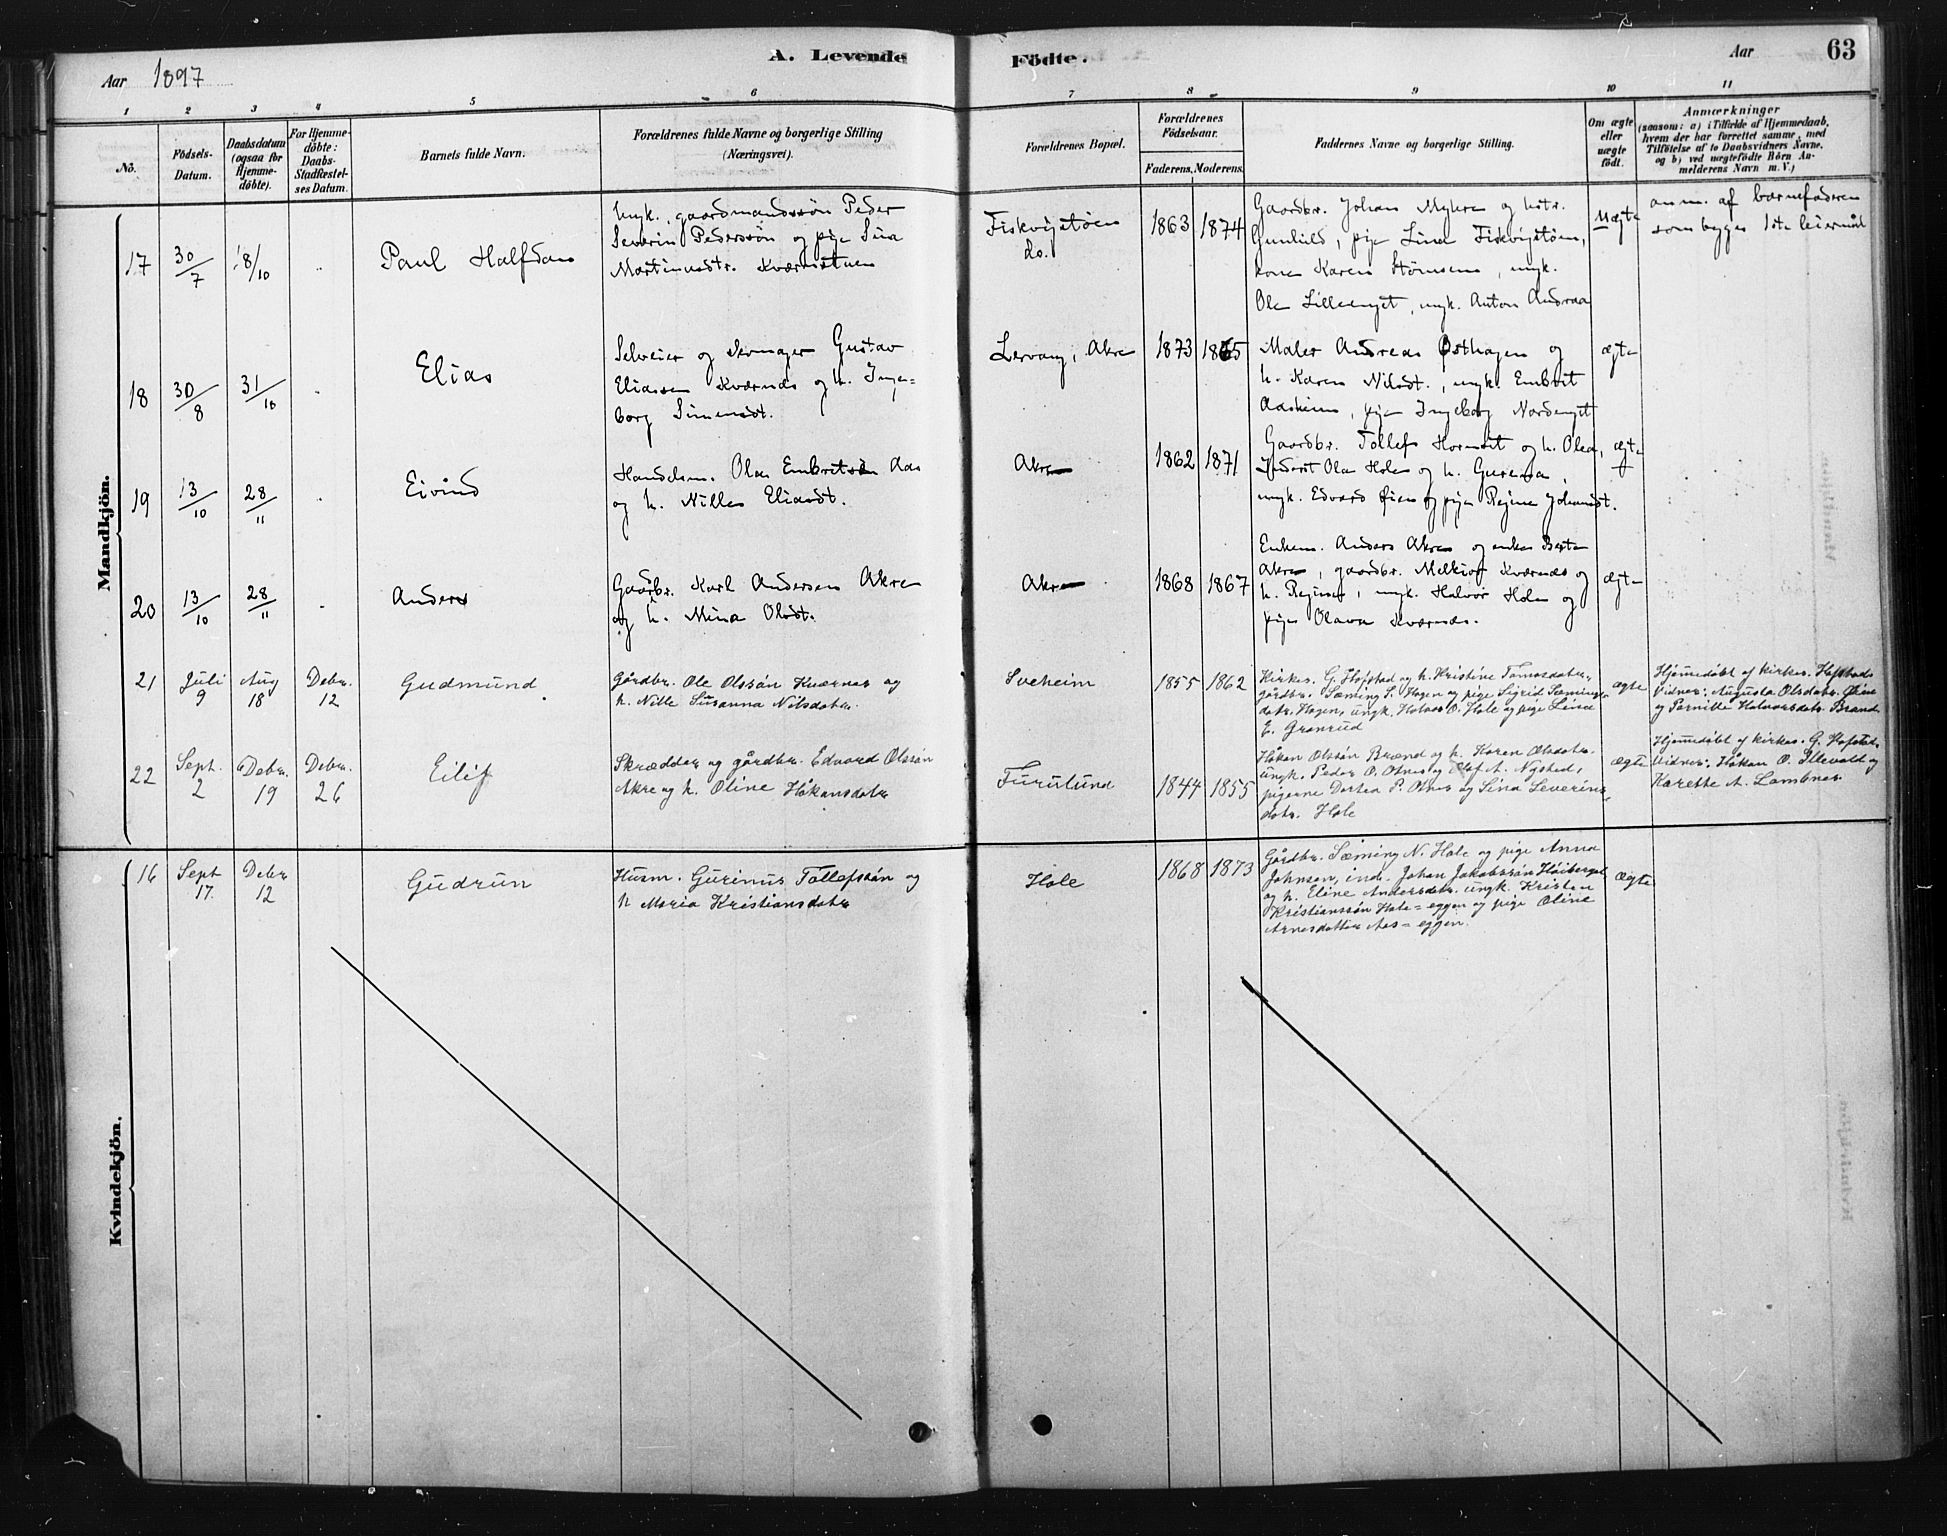 A. Levende
Födte.
Aar 1897
Aar
63
1 2 3 4 5 6 7 8 9 10 11
No.
Födsels-Datum.
Daabsdatum (ogsaa for Hjemme-döbte).
For Hjemme-döbte: Daabs-Stadfæstel-ses Datum.
Barnets fulde Navn.
Forældrenes fulde Navne og borgerlige Stilling
(Næringsvei).
Forældrenes Bopæl.
Forældrenes Födselsaar.
Faderens. Moderens.
Faddernes Navne og borgerlige Stilling.
Om ægte eller uægte födt.
Anmærkninger
(saasom: a) i Tilfælde af Hjemmedaab,
hvem der har forrettet samme, med
Tilföielse af to Daabsvidners Navne,
og b) ved uægtefödte Börn An-
melderens Navn m. V.)
Mandkjön.
17
30/7
18/10
Paul Halfdan
Ungk., gaardmandssön Peder
Severin Pederssön og pige Lina
Martinusdtr. Kværnstuen
Fiskvigstöen
do.
1863 1874
Gaardbr. Johan Myhre og hstr.
Gunhild, pige Lina Fiskvigstöen,
kone Karen Stömsem, ungk.
Ole Lilleenget, ungk. Anton Andraa
Uægte
anm. af barnefaderen
som bygges 1ste leiermål
18
30/8
31/10
Elias
Selveier og skomager Gustav
Eliassen Kværnes og h. Inge-
borg Simensdt.
Lervang, Akre
1873 1865
Maler Andreas Østhagen og
h. Karen Nilsdt., ungk. Embret
Aasheim, pige Ingeborg Nordenget
ægte
19
13/10
28/11
Eivind
Handelsm. Ole Embretsen Aas
og h. Nille Eliasdt.
Akre
1862 1871
Gaardbr. Tollef Hornset og h. Olea,
Inderst Ole Hole og h. Gurena,
ungk. Edvard Öien og pige Regine Johansdt.
ægte
20
13/10
28/11
Anders
Gaardbr. Karl Andersen Akre
og h. Mina Olsdt.
Akre
1868 1867
Enkem. Anders Akre og enke Berte
Akre, gaardbr. Melkior Kværnes og
h. Regine, ungk. Halvor Hole og
pige Olava Kværnes.
ægte
21
Juli 9
Aug 18
Debr. 12
Gudmund.
Gårdbr. Ole Olssön Kværnes og
h. Nille Susanna Nilsdatter.
Sveheim
1855 1862
Kirkes. G. Hofstad og h. Kristine Tomasdatter,
gårdbr. Sæming S. Hagen og pige Sigrid Sæmings-
datr. Hagen, ungk. Halvor O. Hole og pige Lina
E. Granrud
ægte
Hjemmedöbt af kirkes. Hofstad.
Vidner: Augusta Olsdatr. Öien
og Pernille Halvorsdatr. Brænd
22
Sept. 2
Debr. 19
Debr. 26
Eilif
Skrædder og gårdbr. Edvard Olssön
Akre og h. Oline Håkansdatr
Furulund
1844 1855
Håkon Olssön Brænd og h. Karen Olsdatr.
ungk. Peder O. Otnes og Olaf A. Nysted,
pigerne Dortea P. Otnes og Lina Severins-
datr. Hole
ægte
Hjemmedöbt af kirkes. G. Hofstad.
Vidner: Håkon O. Illevold og
Karette A. Lombnes
Kvindekjön.
16
Sept 17.
Debr 12
Gudrun
Husm. Gurinus Tollefssön og
h Maria Kristiansdatr
Hole
1868 1873
Gårdbr. Sæming N. Hole og pige Anna
Johnsen, ind. Johan Jakobssön Höiberget
og h. Eline Andersdatr. ungk. Kristen
Kristianssön Hole-eggen og pige Oline
Arnesdatter Aas-eggen.
ægte